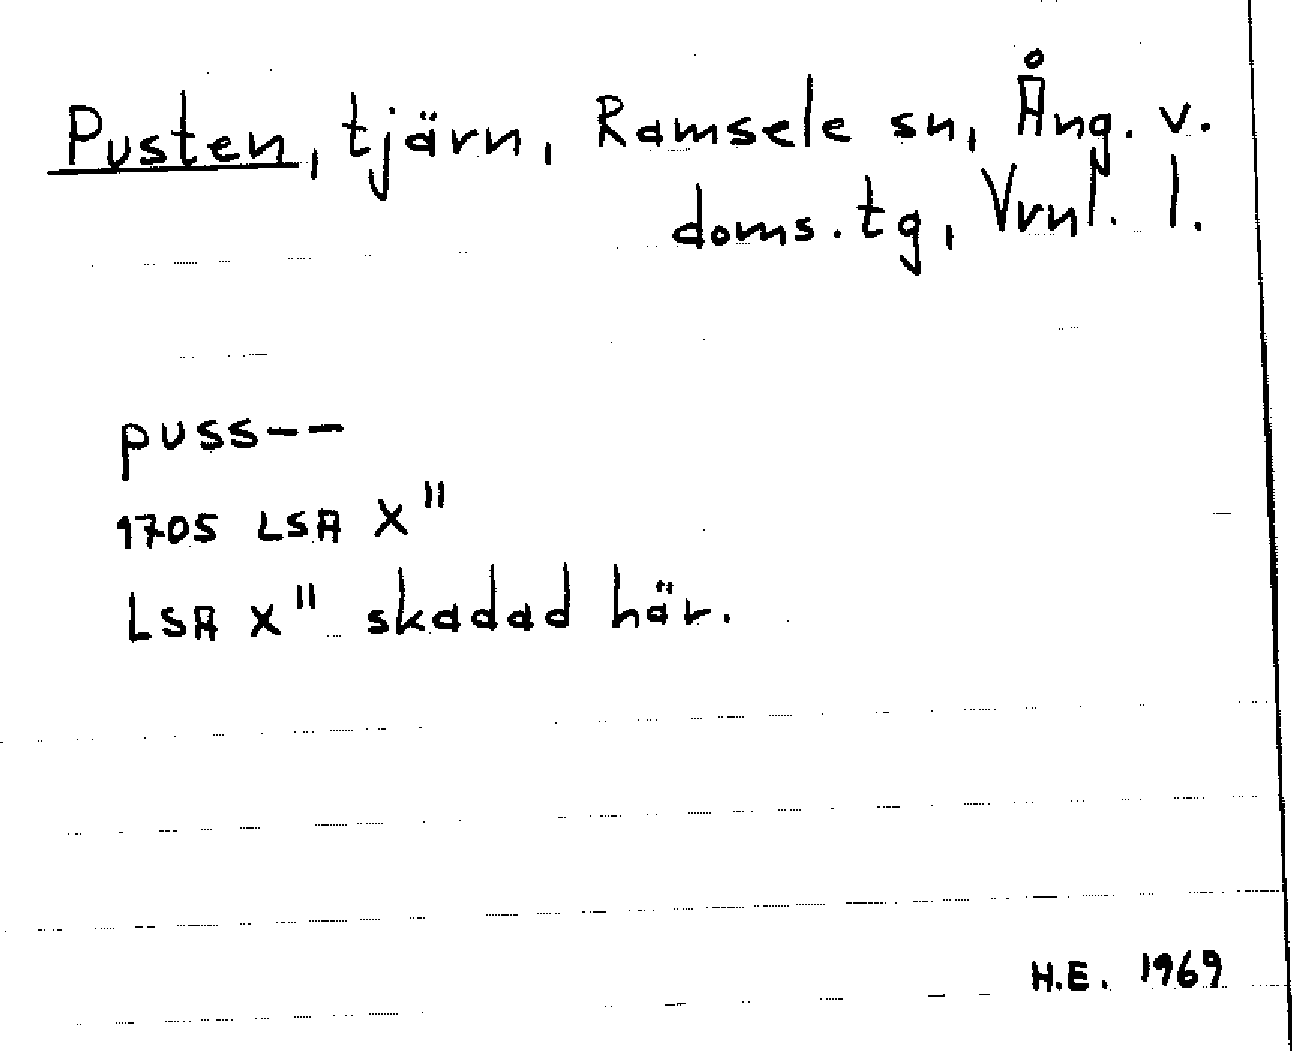 Pusten, tjärn, Ramsele sn, Ång. v.
doms.tg, Vrnl. l.
puss--
1705 LSA X"
LSA X" skadad här.
H.E. 1969